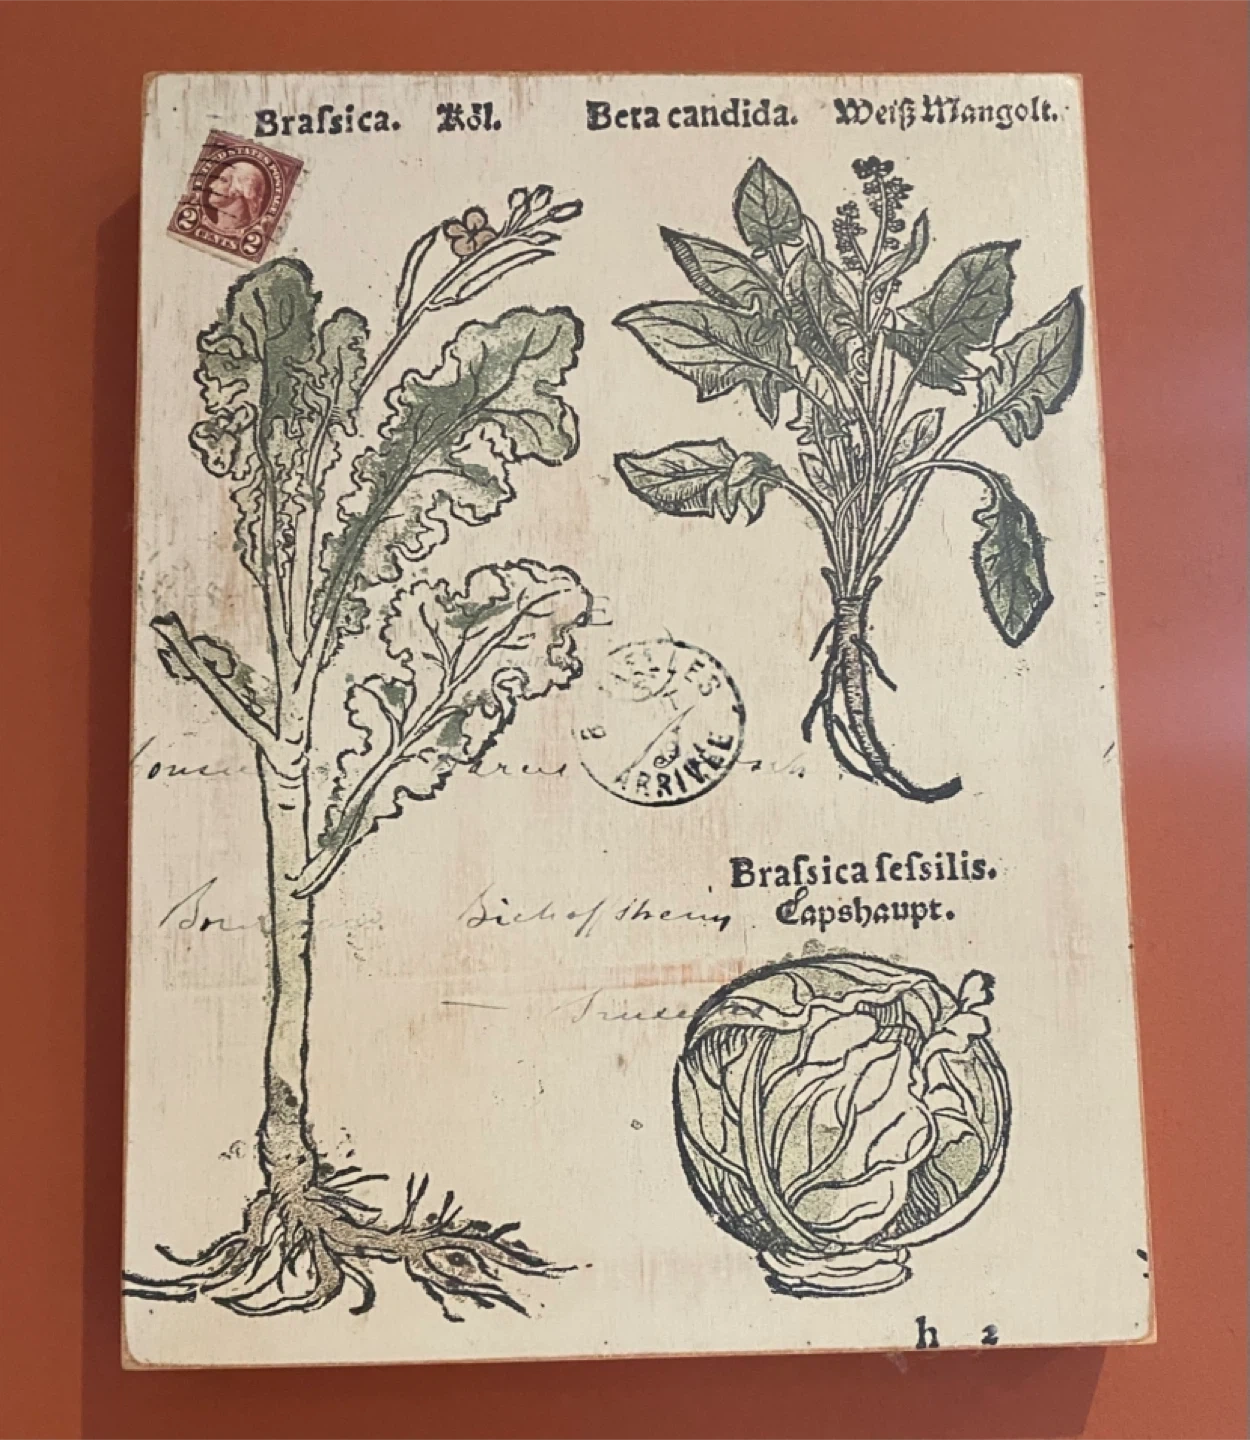 Braſsica. Köl. Beta candida. Weiß Mangolt.
UNITED STATES POSTAGE
2 CENTS 2
ARRIVÉE
Bischoffsheim
Braſsica ſeſsilis.
Capshaupt.
h 2